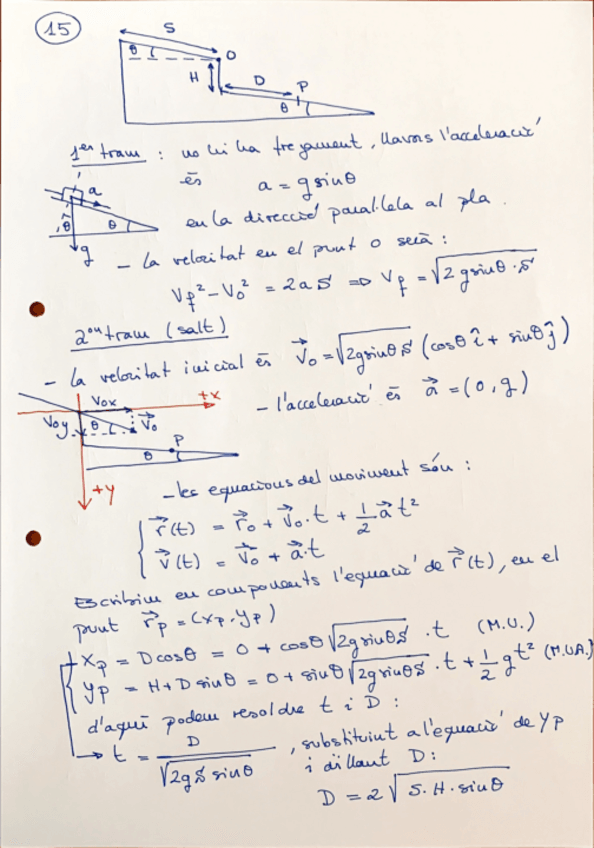 15
S
θ
O
H
D
P
θ
1er tram : no hi ha fregament, llavors l'acceleració
és a = g sinθ
en la direcció paral·lela al pla.
a
θ
θ
g
- la velocitat en el punt O serà :
Vf² - V0² = 2aS ⇒ Vf = √(2 g sinθ · S)
2on tram (salt)
- la velocitat inicial és V⃗0 = √(2g sinθ S) (cosθ î + sinθ ĵ)
- l'acceleració és a⃗ = (0, g)
V0x
+x
V0y
θ
V⃗0
P
θ
+y
- les equacions del moviment són :
r⃗(t) = r⃗0 + V⃗0 · t + 1/2 a⃗ t²
v⃗(t) = V⃗0 + a⃗·t
Escribim en components l'equació de r⃗(t), en el
punt r⃗p = (xp, yp)
xp = D cosθ = 0 + cosθ √(2g sinθ S) · t (M.U.)
yp = H + D sinθ = 0 + sinθ √(2g sinθ S) · t + 1/2 g t² (M.U.A.)
d'aquí podem resoldre t i D :
→ t = D / √(2g S sinθ) , substituint a l'equació de yp
i aïllant D:
D = 2 √(S · H · sinθ)